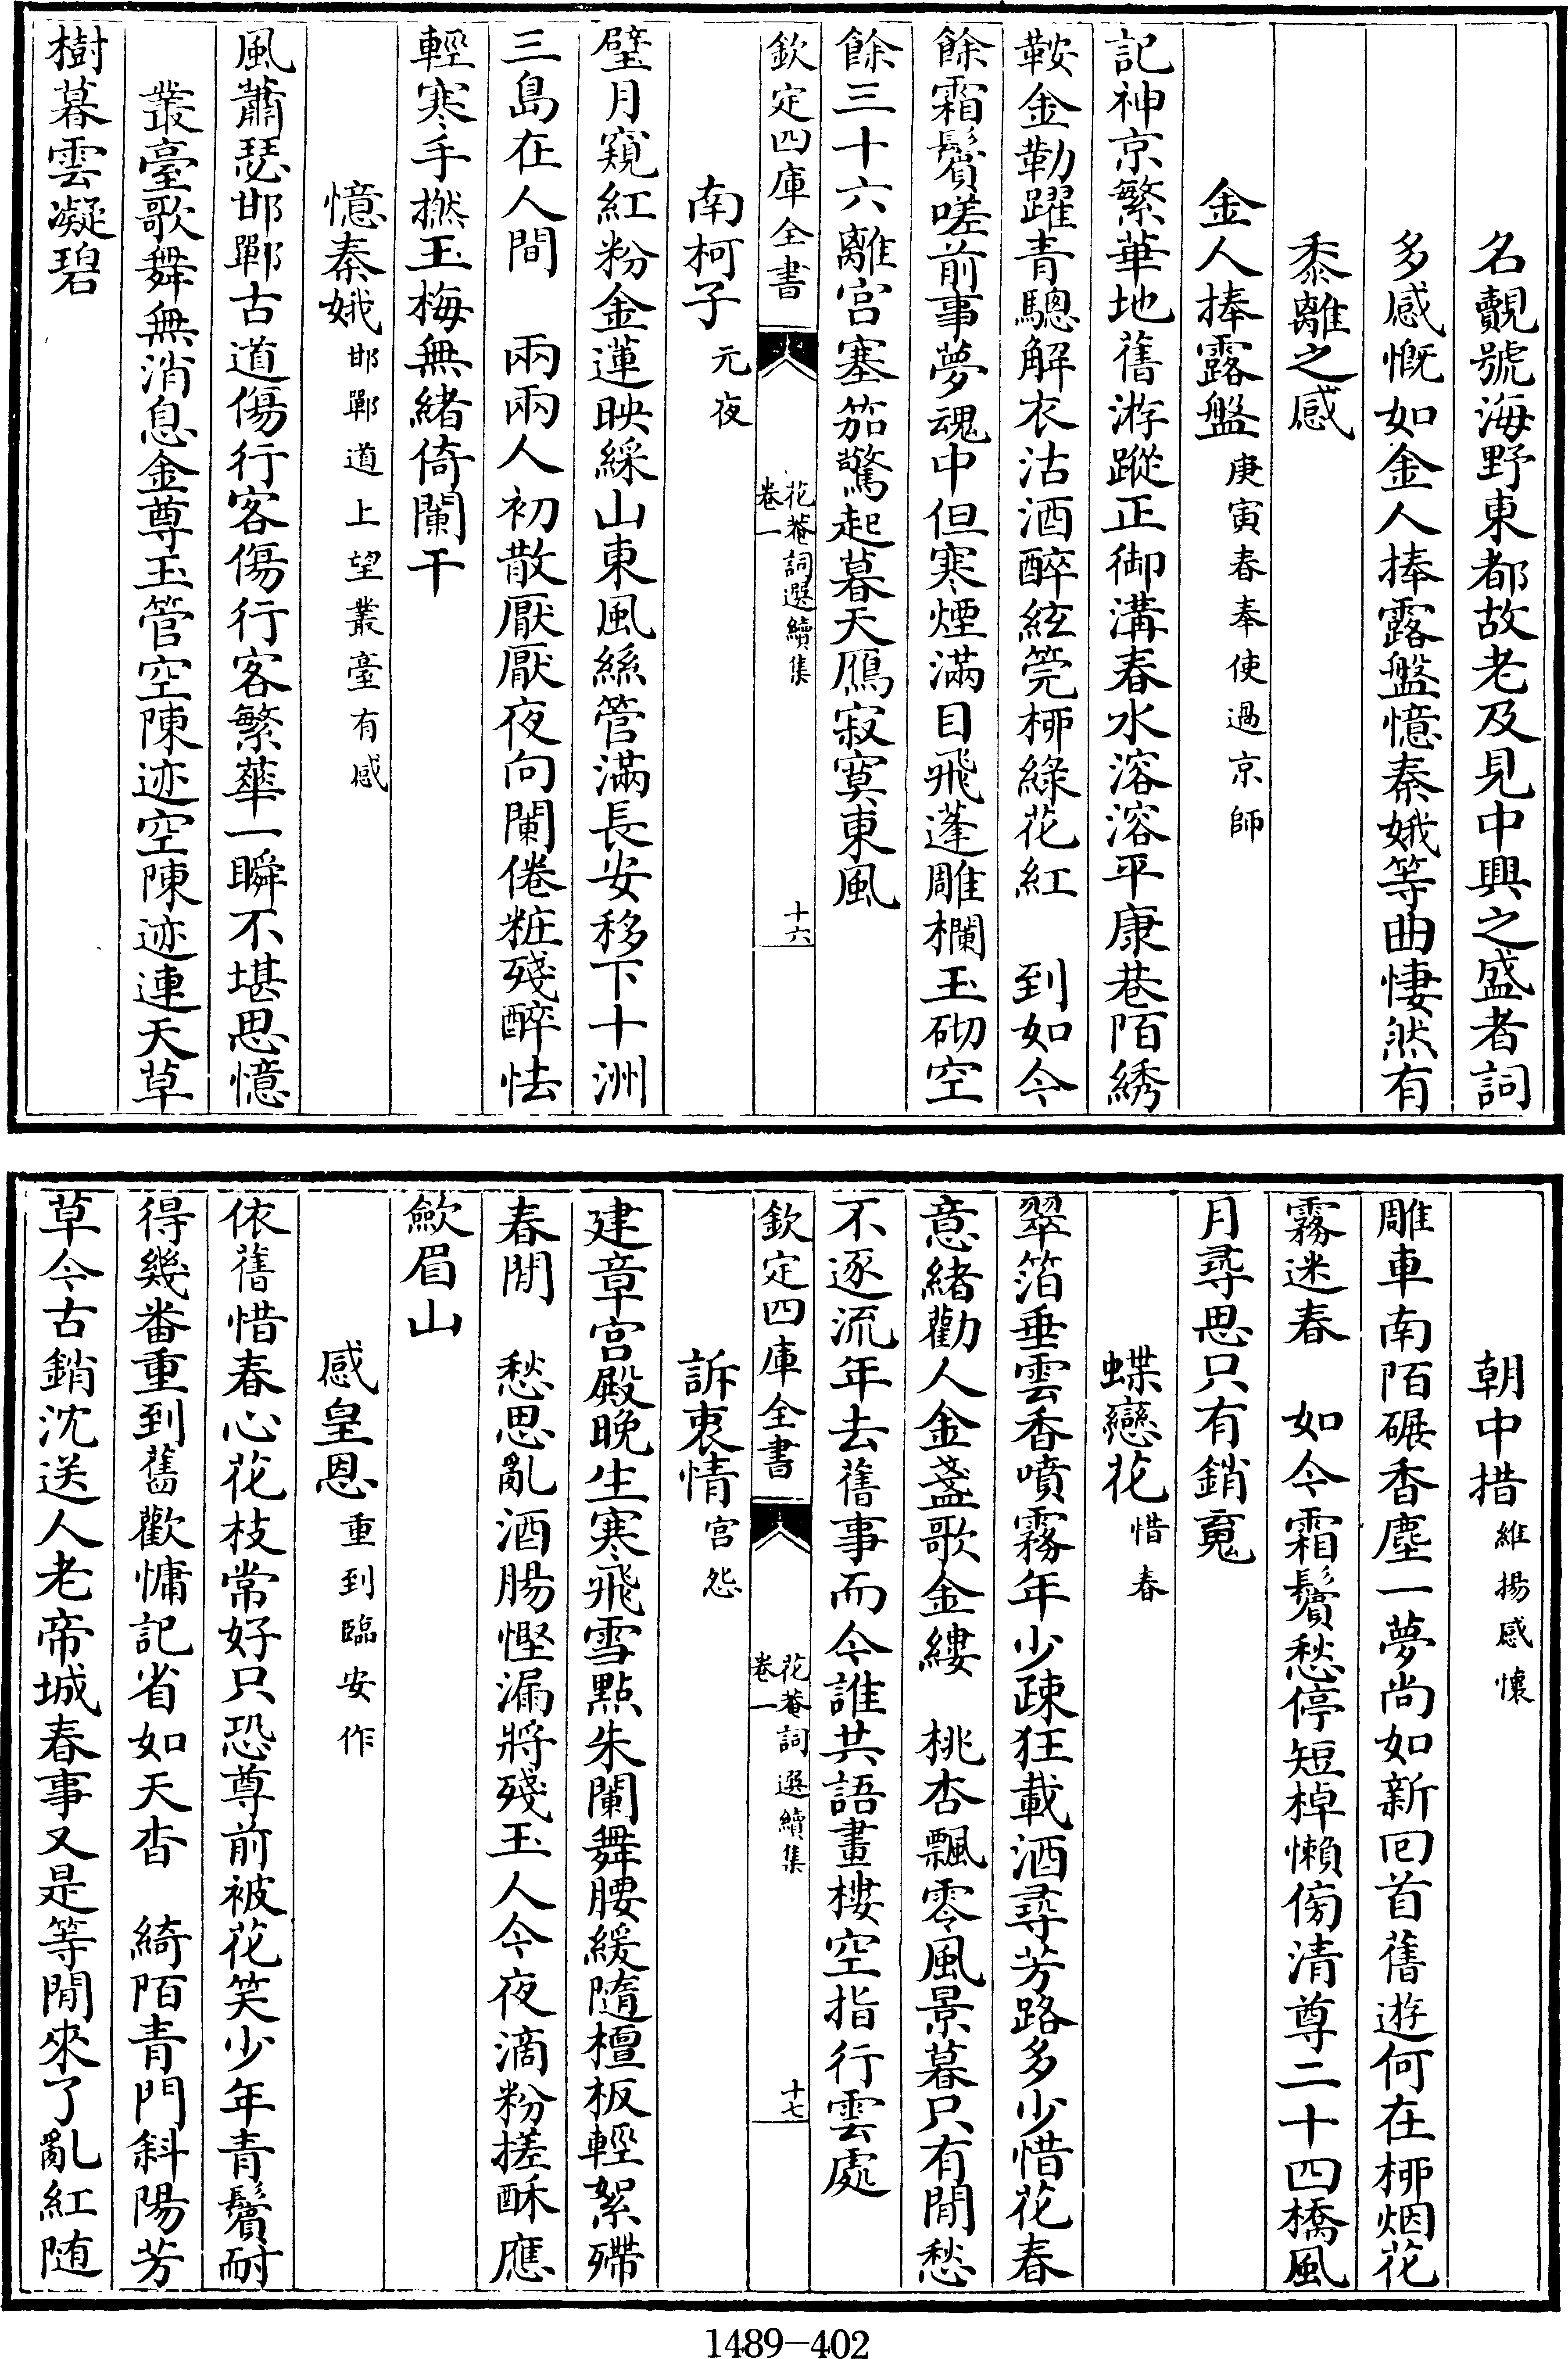 名覿號海野東都故老及見中興之盛者詞
多感慨如金人捧露盤憶秦娥等曲悽然有
黍離之感
金人捧露盤庚寅春奉使過京師
記神京繁華地舊游蹤正御溝春水溶溶平康巷陌綉
鞍金勒躍青驄解衣沽酒醉絃筦桺綠花紅　到如今
餘霜鬢嗟前事夢魂中但寒煙滿目飛蓬雕欄玉砌空
餘三十六離宮塞笳驚起暮天鴈寂寞東風
欽定四庫全書
花菴詞選續集
卷一
十六
南柯子元夜
璧月窺紅粉金蓮映綵山東風絲管滿長安移下十洲
三島在人間　兩兩人初散厭厭夜向闌倦粧殘醉怯
輕寒手撚玉梅無緒倚闌干
憶秦娥邯鄲道上望叢臺有感
風蕭瑟邯鄲古道傷行客傷行客繁華一瞬不堪思憶
叢臺歌舞無消息金尊玉管空陳迹空陳迹連天草
樹暮雲凝碧
朝中措維揚感懷
雕車南陌碾香塵一夢尚如新囘首舊遊何在桺烟花
霧迷春　如今霜鬢愁停短棹懶傍清尊二十四橋風
月尋思只有銷䰟
蝶戀花惜春
翠箔垂雲香噴霧年少疎狂載酒尋芳路多少惜花春
意緒勸人金盞歌金縷　桃杏飄零風景暮只有閒愁
不逐流年去舊事而今誰共語畫樓空指行雲處
欽定四庫全書
花菴詞選續集
卷一
十七
訴衷情宮怨
建章宮殿晚生寒飛雪點朱闌舞腰緩隨檀板輕絮殢
春閒　愁思亂酒腸慳漏將殘玉人今夜滴粉搓酥應
歛眉山
感皇恩重到臨安作
依舊惜春心花枝常好只恐尊前被花笑少年青鬢耐
得幾番重到舊歡慵記省如天杳　綺陌青門斜陽芳
草今古銷沈送人老帝城春事又是等閒來了亂紅随
1489-402